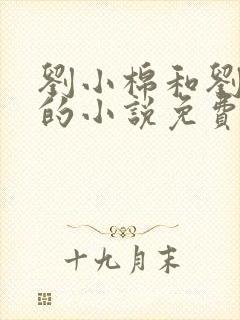 劉小棉和劉
的小說免費
十九月末